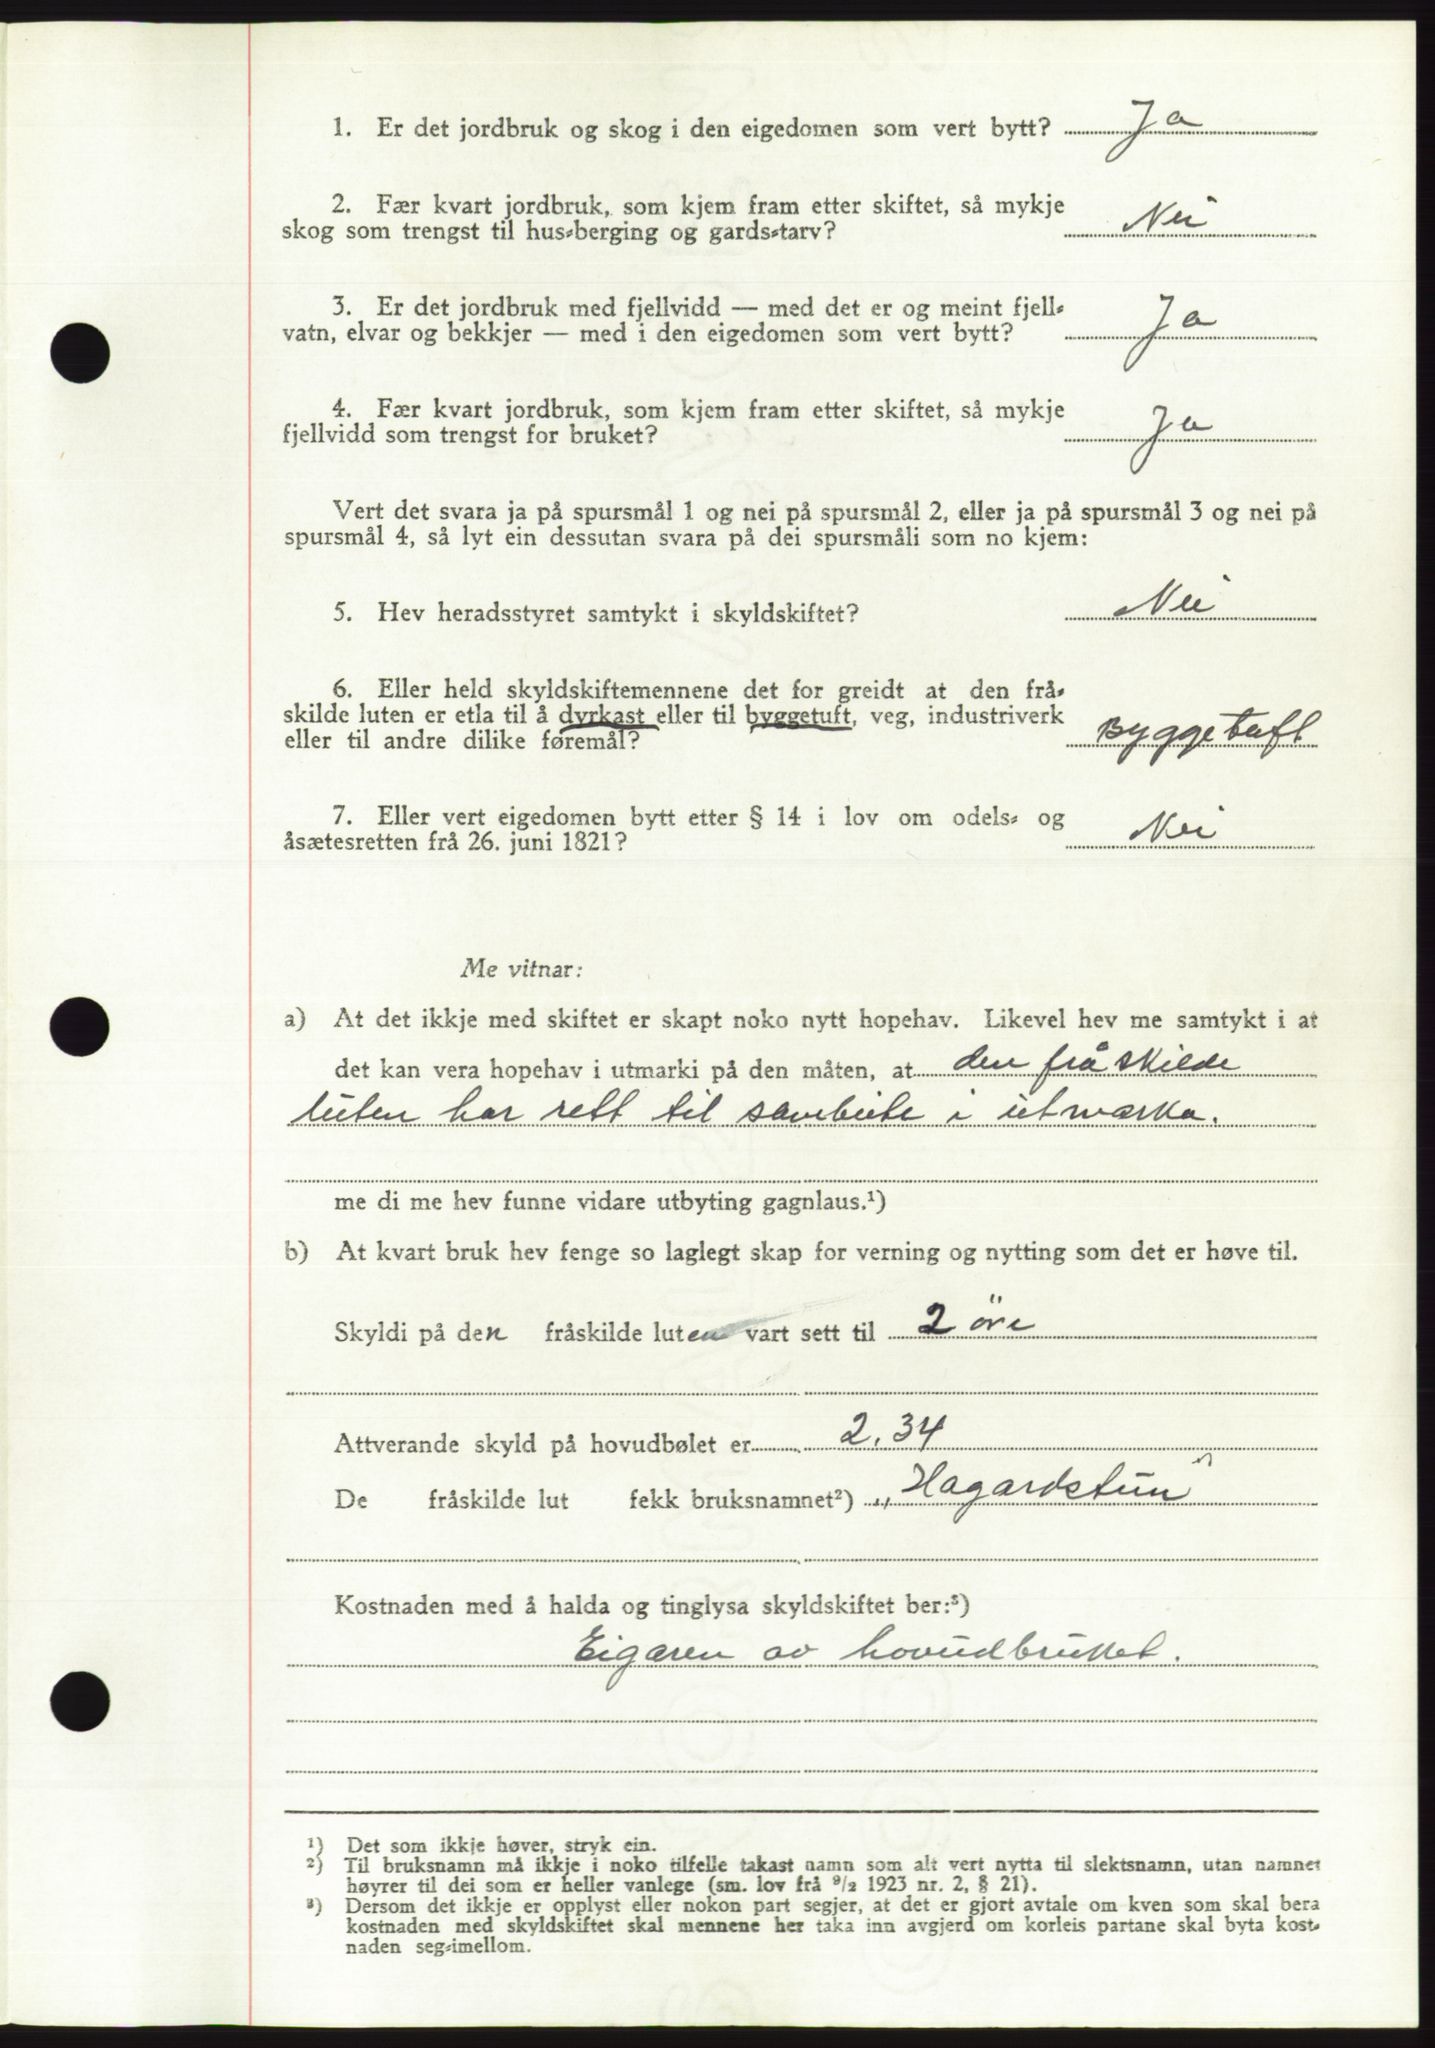 1. Er det jordbruk og skog i den eigedomen som vert bytt? Ja
2. Fær kvart jordbruk, som kjem fram etter skiftet, så mykje
skog som trengst til hus-berging og gards-tarv? Nei
3. Er det jordbruk med fjellvidd — med det er og meint fjell-
vatn, elvar og bekkjer — med i den eigedomen som vert bytt? Ja
4. Fær kvart jordbruk, som kjem fram etter skiftet, så mykje
fjellvidd som trengst for bruket? Ja
Vert det svara ja på spursmål 1 og nei på spursmål 2, eller ja på spursmål 3 og nei på
spursmål 4, så lyt ein dessutan svara på dei spursmåli som no kjem:
5. Hev heradsstyret samtykt i skyldskiftet? Nei
6. Eller held skyldskiftemennene det for greidt at den frå-
skilde luten er etla til å dyrkast eller til byggetuft, veg, industriverk
eller til andre dilike føremål? Byggetuft
7. Eller vert eigedomen bytt etter § 14 i lov om odels- og
åsætesretten frå 26. juni 1821? Nei
Me vitnar:
a) At det ikkje med skiftet er skapt noko nytt hopehav. Likevel hev me samtykt i at
det kan vera hopehav i utmarki på den måten, at den fråskilde
luten har rett til sambeite i utmarka.
me di me hev funne vidare utbyting gagnlaus.¹)
b) At kvart bruk hev fenge so laglegt skap for verning og nytting som det er høve til.
Skyldi på den fråskilde luten vart sett til 2 öre
Attverande skyld på hovudbølet er 2,34
De fråskilde lut fekk bruksnamnet²) „Hagardstun"
Kostnaden med å halda og tinglysa skyldskiftet ber:³)
Eigaren av hovudbruket.
¹) Det som ikkje høver, stryk ein.
²) Til bruksnamn må ikkje i noko tilfelle takast namn som alt vert nytta til slektsnamn, utan namnet
høyrer til dei som er heller vanlege (sm. lov frå ⁹/₂ 1923 nr. 2, § 21).
³) Dersom det ikkje er opplyst eller nokon part segjer, at det er gjort avtale om kven som skal bera
kostnaden med skyldskiftet skal mennene her taka inn avgjerd om korleis partane skal byta kost-
naden seg-imellom.